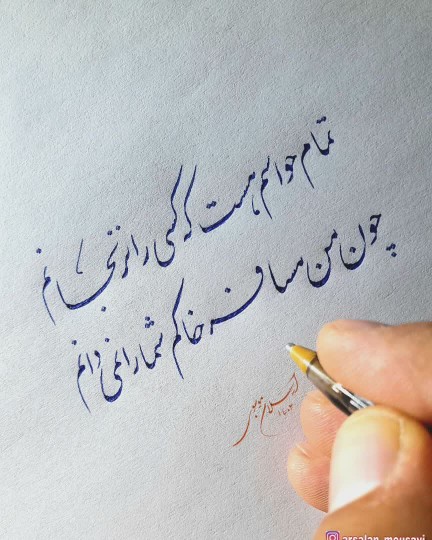 تمام حواسم هست که کسی را نرنجانم
چون من مسافر خاکم شما را نمی دانم
ارسلان موسوی
arsalan_mousavi